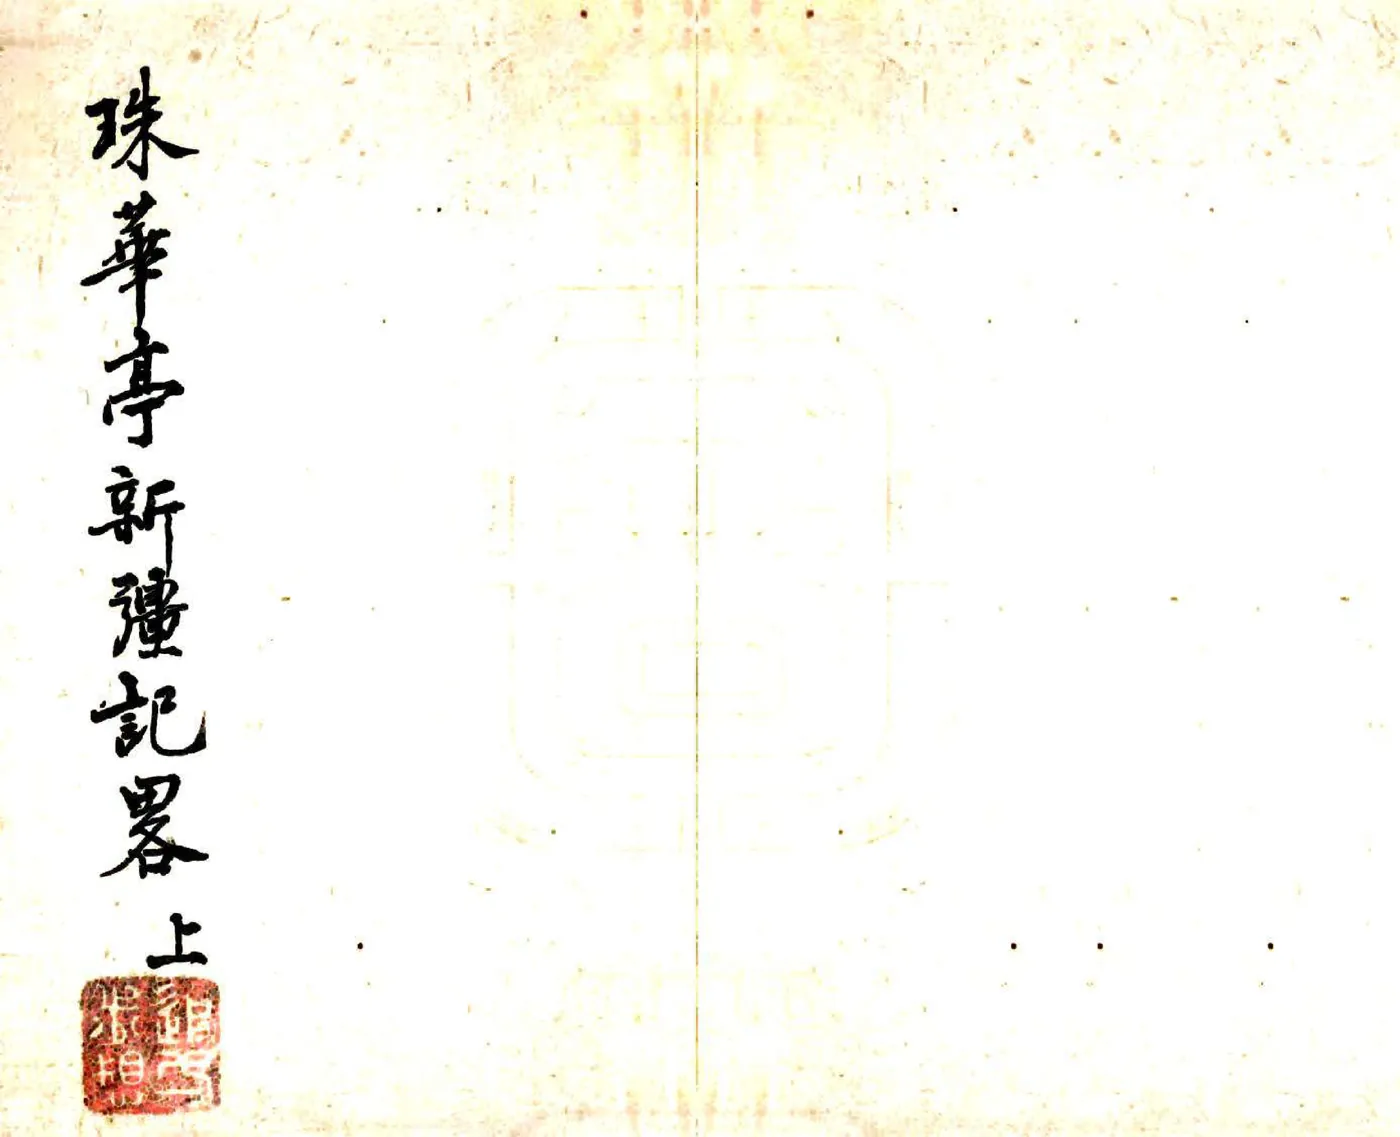 珠華亭新疆記畧
上